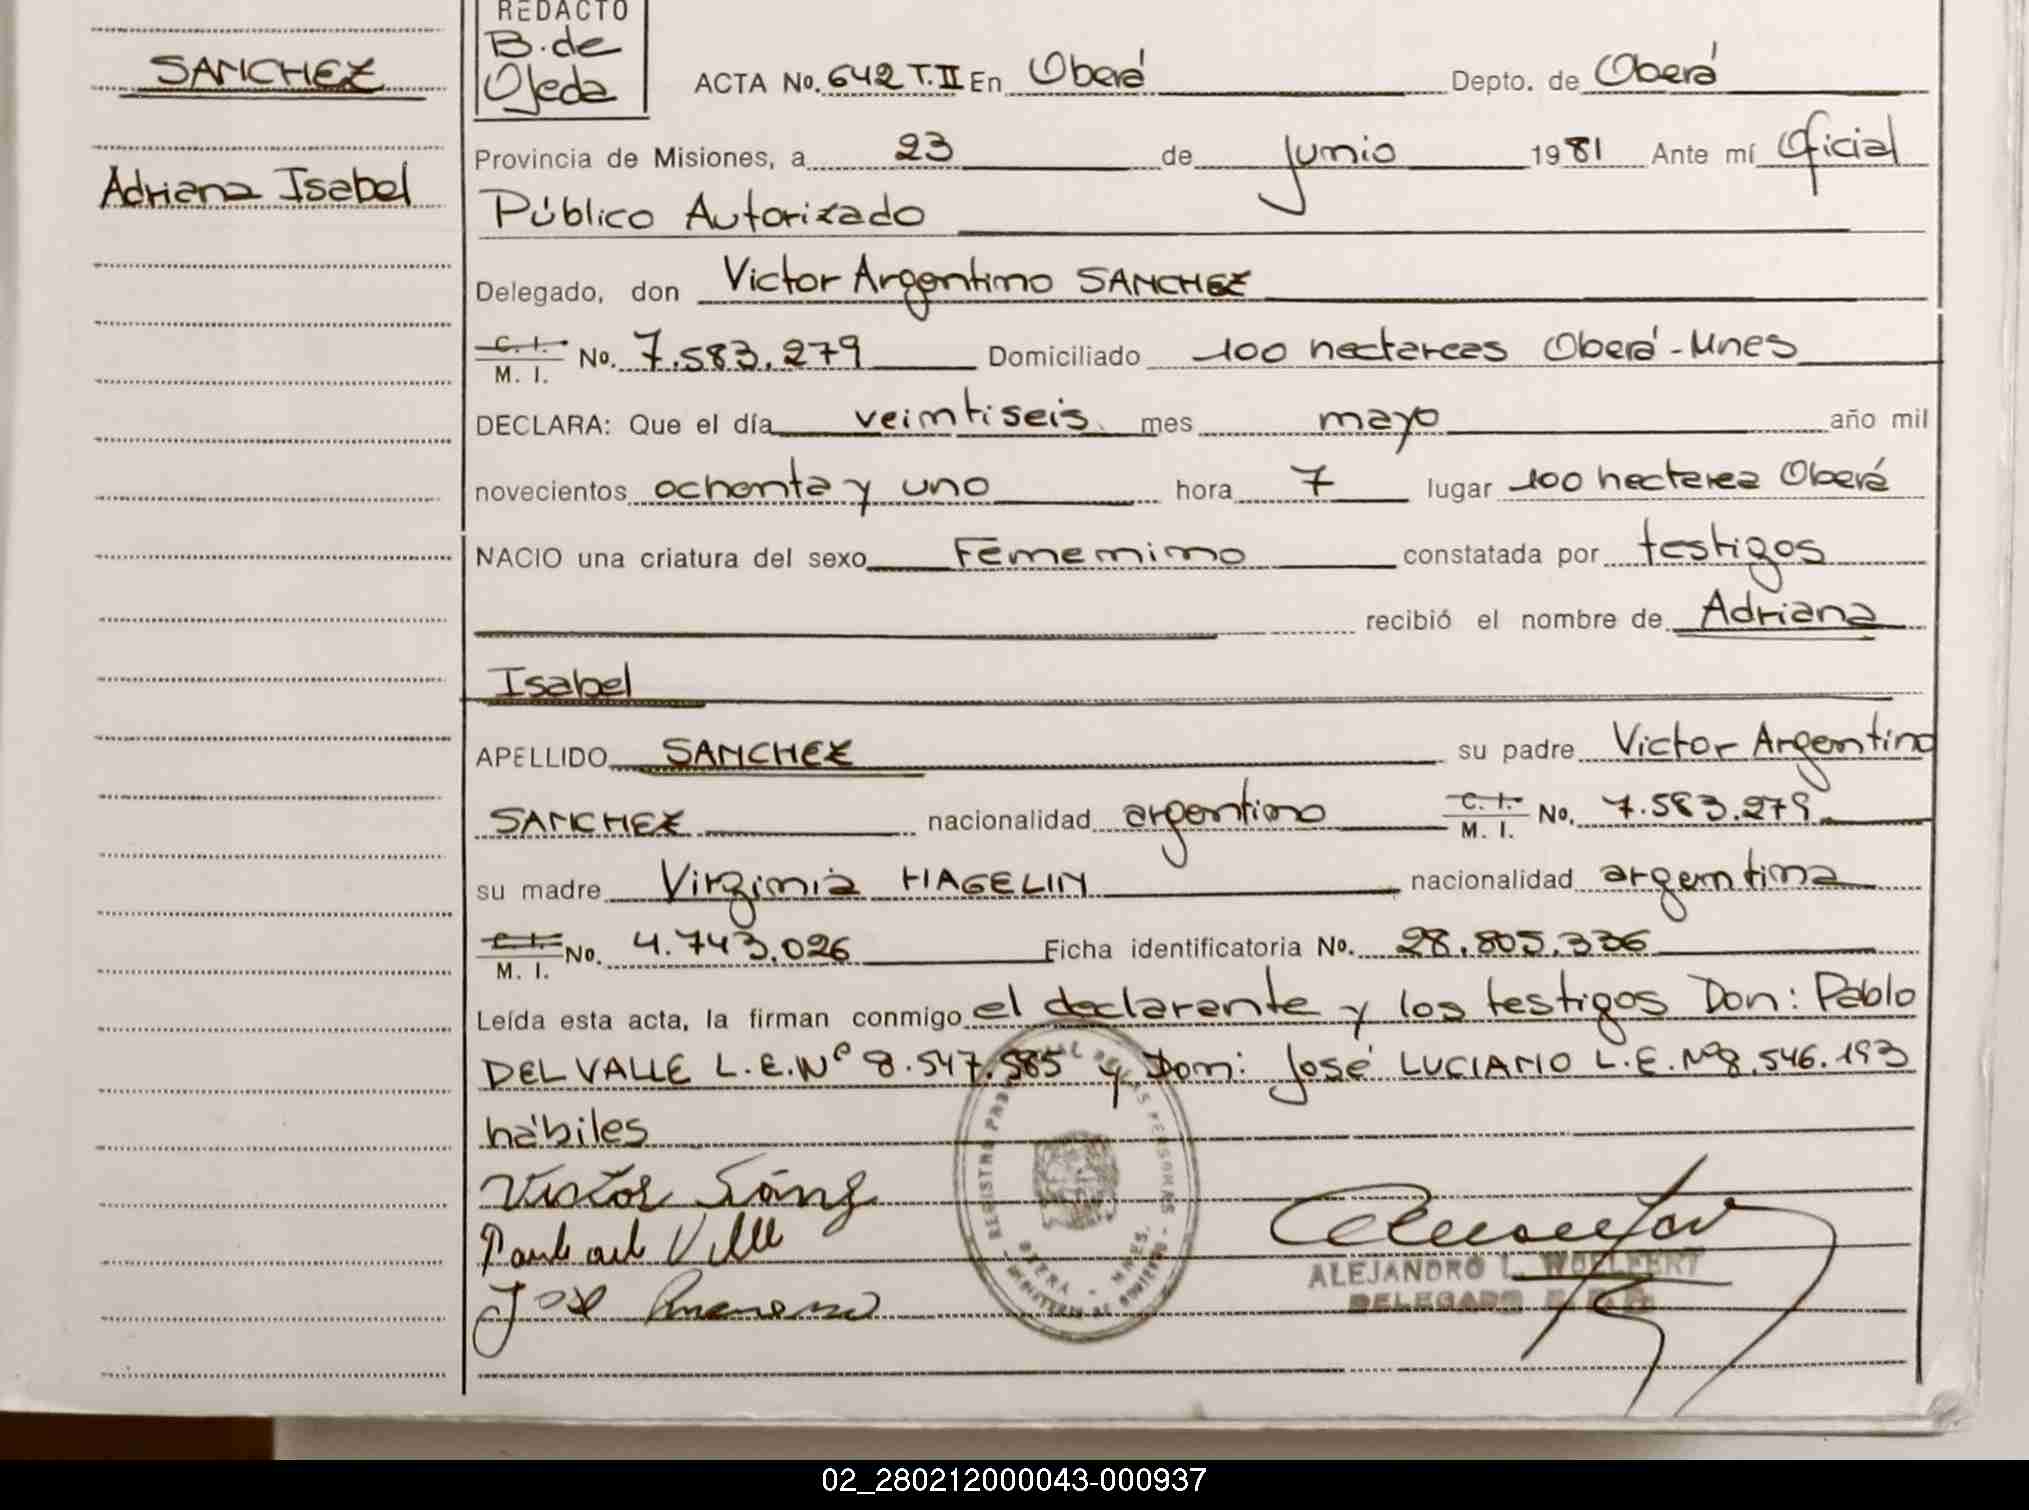 SANCHEZ
Adriana Isabel
REDACTO
B. de
Ojeda
ACTA No. 642 T.II En Oberá Depto. de Oberá
Provincia de Misiones, a 23 de junio 1981 Ante mí Oficial
Público Autorizado
Delegado, don Victor Argentino SANCHEZ
C. I.
M. I. No. 7.583.279 Domiciliado 100 hectareas Oberá-Mnes
DECLARA: Que el día veintiseis mes mayo año mil
novecientos ochenta y uno hora 7 lugar 100 hectarea Oberá
NACIO una criatura del sexo Femenino constatada por testigos
recibió el nombre de Adriana
Isabel
APELLIDO SANCHEZ su padre Victor Argentino
SANCHEZ nacionalidad argentino C. I. M. I. No. 7.583.279
su madre Virginia HAGELIN nacionalidad argentina
C. I. M. I. No. 4.743.026 Ficha identificatoria No. 28.805.336
Leída esta acta, la firman conmigo el declarante y los testigos Don: Pablo
DEL VALLE L.E.Nº 8.547.585 y Don: José LUCIANO L.E.Nº 8.546.193
hábiles
Victor
José
ALEJANDRO L. WOLLFERT
DELEGADO
02_280212000043-000937